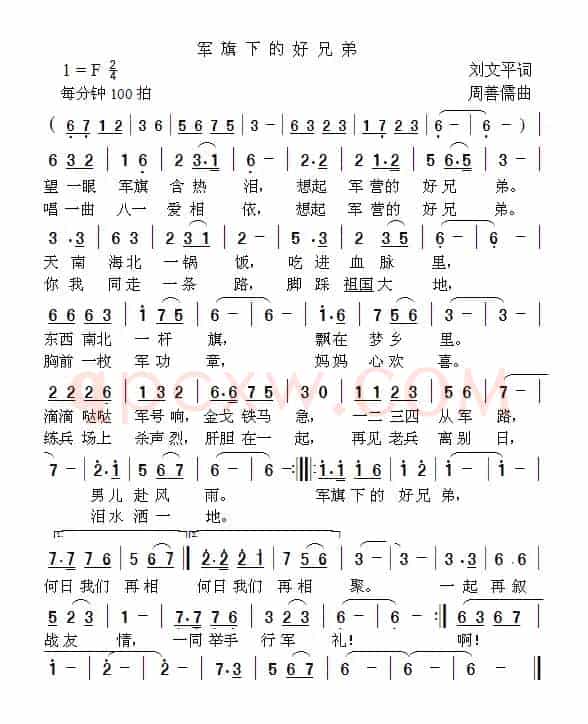 军旗下的好兄弟
1=F 2/4
刘文平词
每分钟100拍
周善儒曲
( 6 7 1 2 | 3 6 | 5 6 7 5 | 3 - | 6 1 2 3 | 1 7 1 2 | 6 - | 6 - ) |
6 3 2 | 1 6 | 2 3·1 | 6 - | 2·2 | 2 1·2 | 5 6·5 | 3 - |
望一眼 军旗 含热 泪, 想起 军营的 好兄 弟。
唱一曲 八一 爱相 依, 想起 军营的 好兄 弟。
天南 海北 一锅 饭, 吃进 血脉 里,
你我 同走 一条 路, 脚踩 祖国大 地,
6 6 6 3 | 5 6 6 3 | 1 7 5 | 6 -
东西 南北 一杆 旗, 飘在 梦乡 里。
胸前 一枚 军功 章, 妈妈 心欢 喜。
qpoxw.COM
2 2 2 6 | 2 2 2 1
滴滴 哒哒 军号响,金戈铁马 急, 一二三四 从军 路,
练兵 场上 杀声烈,肝胆在一 起, 再见老兵 离别 日,
7 - | 2·1 | 5 6 7 | 6 -
男儿 赴风 雨。 军旗下的 好兄弟,
泪水 洒一 地。
1. 2.
7·7 7 6 | 5 6 7
何日我们 再相 何日我们 再相 聚。 一起 再叙
5 2 3 | 2 - | 1 -
战友 情, 一同举手 行军 礼! 啊!
1 - | 2 - | 2 - | 7·3 | 5 6 7 | 6 - | 6 - | 6 - ‖